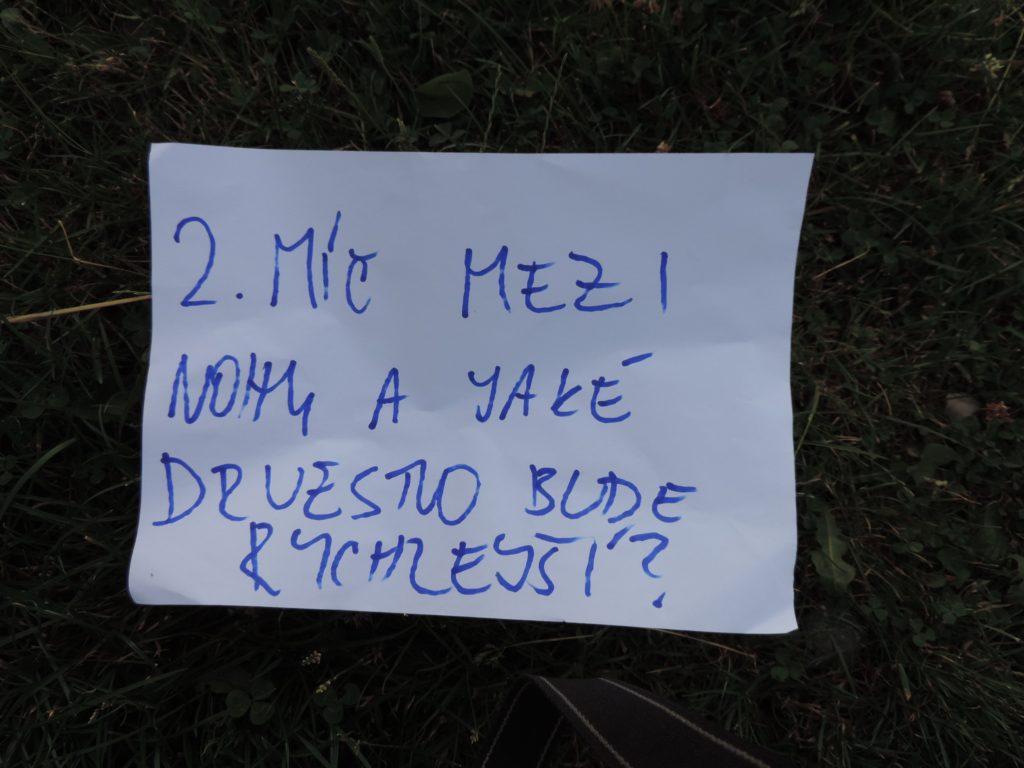 2. MÍČ MEZI
NOHY A JAKÉ
DRUŽSTVO BUDE
RYCHLEJŠÍ?